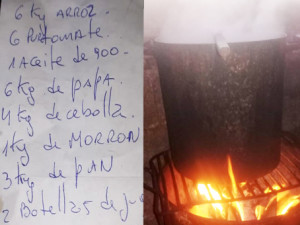 6 Kg ARROZ.
6 PURTOMATE.
1 Aceite de 900.
6Kg de PAPA.
4Kg de cebolla.
1Kg de MORRON
3Kg de PAN
2 Botellas de